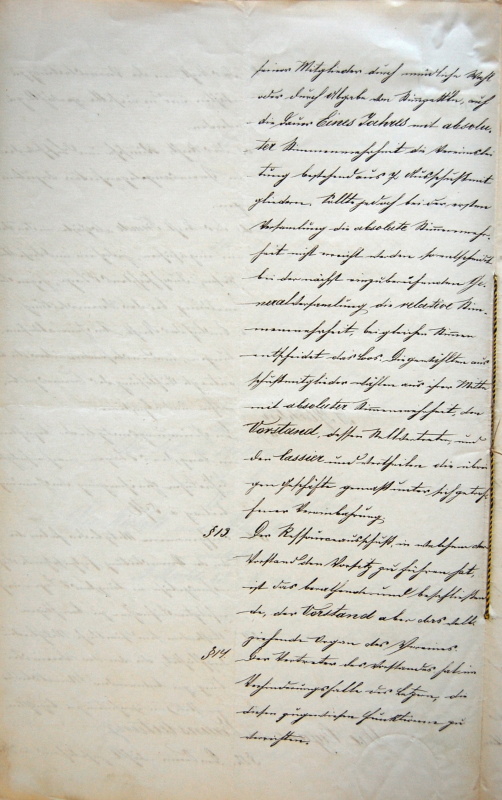 seiner Mitglieder durch mündliche Wahl
oder durch Abgabe von Stimzetteln, auf
die Dauer Eines Jahres mit absolu-
ter Stimmenmehrheit die Vereinslei-
tung bestehend aus 7 Ausschußmit-
gliedern. Sollte jedoch bei der ersten
Versamlung die absolute Stimmenmehr-
heit nicht erreicht werden so entscheidet
bei der nächst einzuberufenden Ge-
neralversamlung die relative Stim-
menmehrheit, bei gleichen Stimmen
entscheidet das Los. Die gewählten Aus-
schußmitglieder wählen aus ihrer Mitte
mit absoluter Stimmenmehrheit, den
Vorstand, dessen Stellvertreter, und
den Cassier und vertheilen die übri-
gen Geschäfte gemäß unter sich getrof-
fener Vereinbarung.
§ 13. Der Ausschuß, in welchem der
Vorstand den Vorsitz zu führen hat,
ist das berathende und beschließen-
de, der Vorstand aber das voll-
ziehende Organ des Vereines.
§ 14. Der Vertreter des Vorstandes hat im
Verhinderungsfalle des Letzern, die
diesem zugewiesenen Funktionen zu
verrichten.